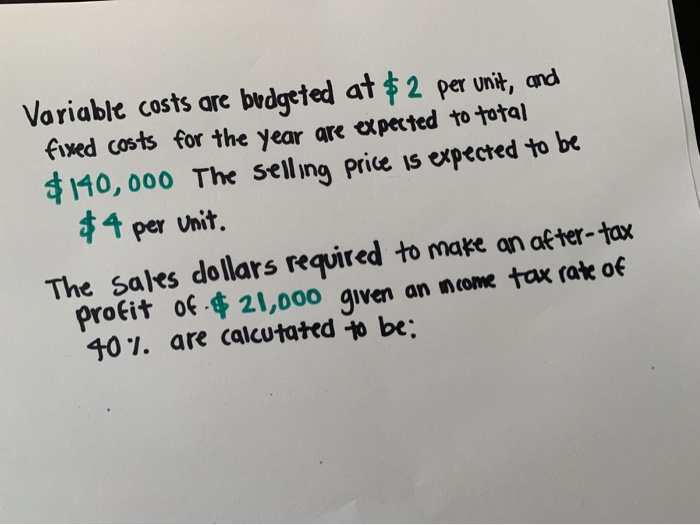 Variable costs are budgeted at $2 per unit, and
fixed costs for the year are expected to total
$140,000 The selling price is expected to be
$4 per unit.
The sales dollars required to make an after-tax
profit of $21,000 given an income tax rate of
40%. are calcutated to be: